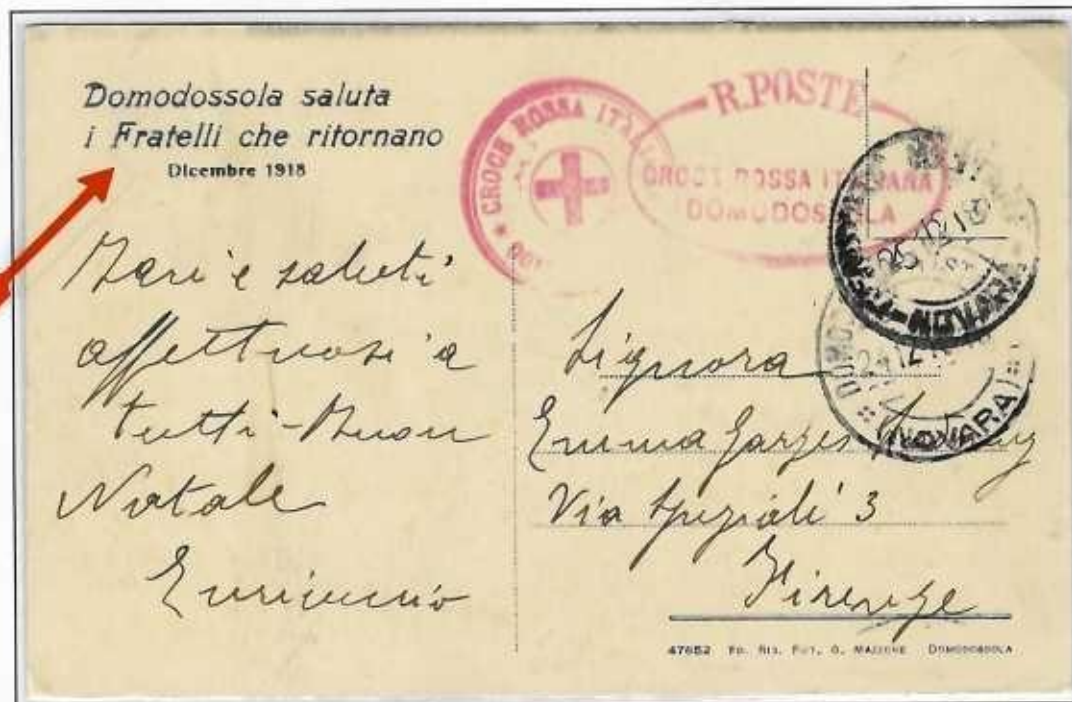 Domodossola saluta
i Fratelli che ritornano
Dicembre 1918
Baci e saluti
affettuosi a
tutti - Buon
Natale
CROCE ROSSA ITAL
R. POSTE
CROCE ROSSA ITALIANA
DOMODOSSOLA
25.12.18
NOVARA
DOMO
(NOVARA)
Signora
Emma
Via Speziali 3
Firenze
47652 ED. RIS. FOT. G. MAZZONE DOMODOSSOLA